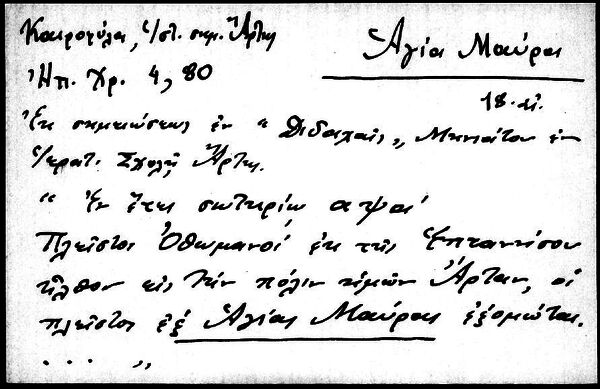 Καιροφύλα, Ἱστ. σημ. Ἄρτης
Ἁγία Μαύρα
Ἠπ. Χρ. 4, 80
18. αἰ.
Ἐκ σημειώσεως ἐν "Διδαχαῖς„ Μηνιάτου ἐν
Ἱερατ. Σχολῇ Ἄρτης.
"Ἐν ἔτει σωτηρίῳ αψαʹ
Πλεῖστοι Ὀθωμανοί ἐκ τῆς Ἑπταννήσου
ἦλθον εἰς τήν πόλιν ἡμῶν Ἄρταν, οἱ
πλεῖστοι ἐξ Ἁγίας Μαύρας ἐξομώται.
. . . „